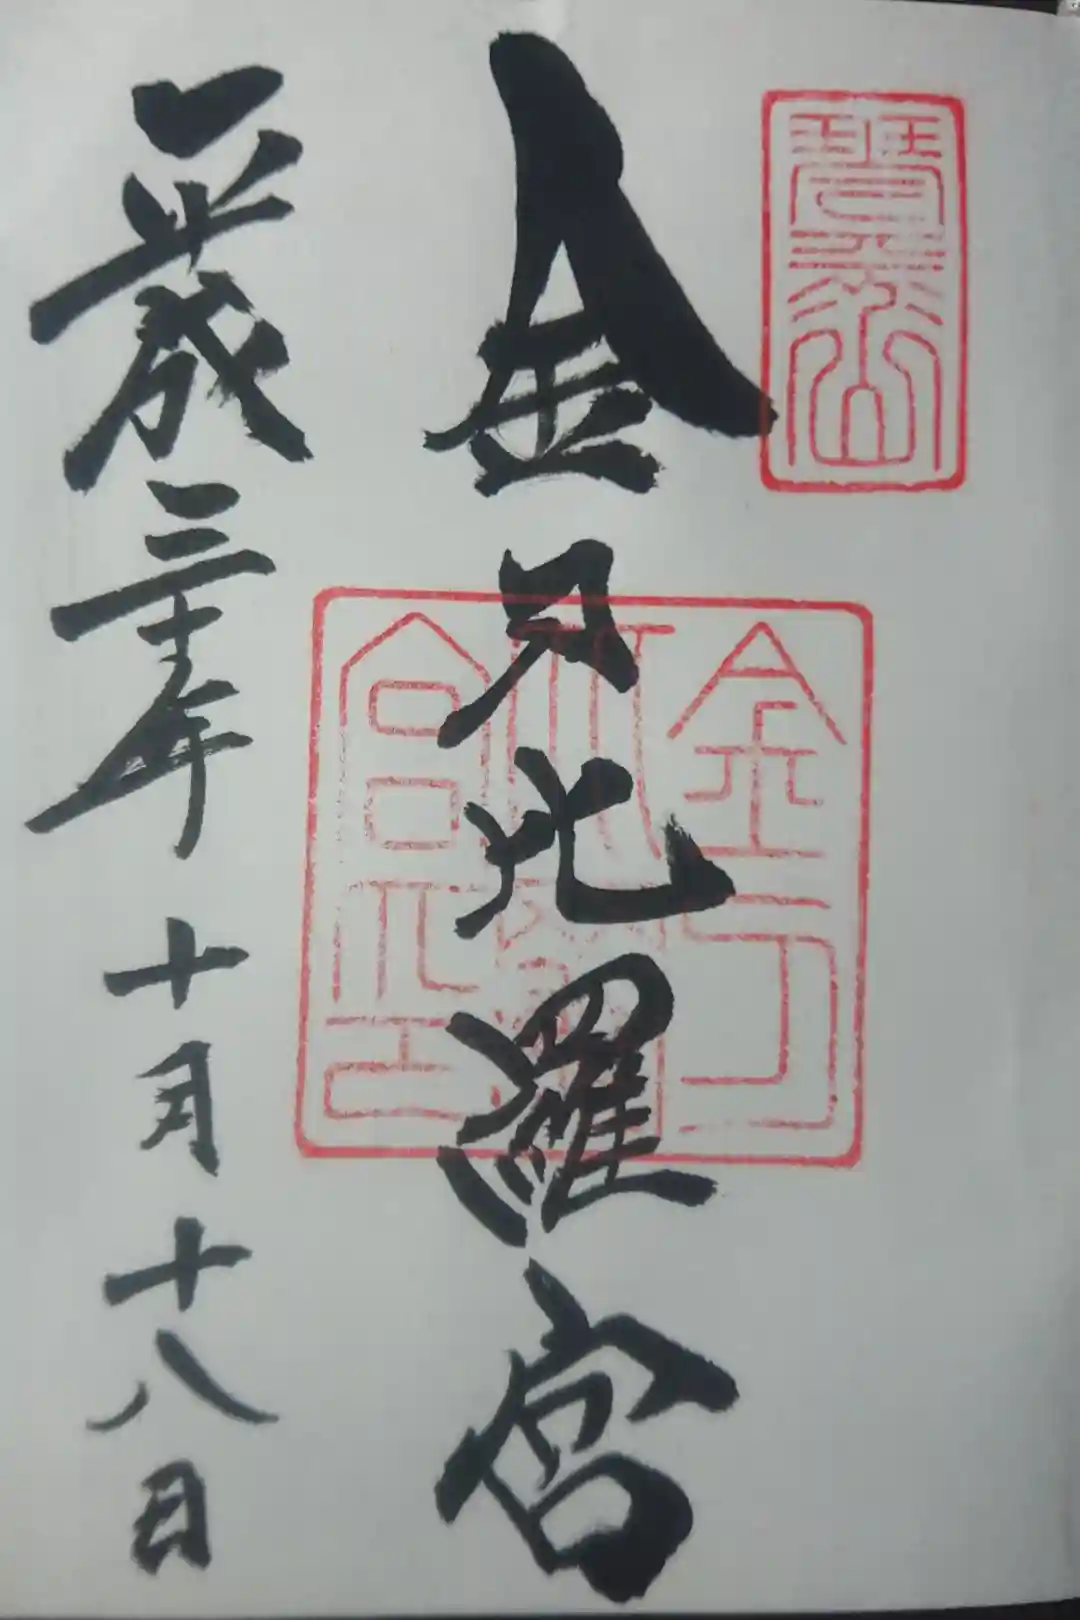 琴平山
金刀比羅宮
金刀比羅宮印
平成三十年十月十八日